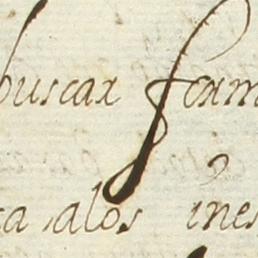 buscar form
ca alos ines